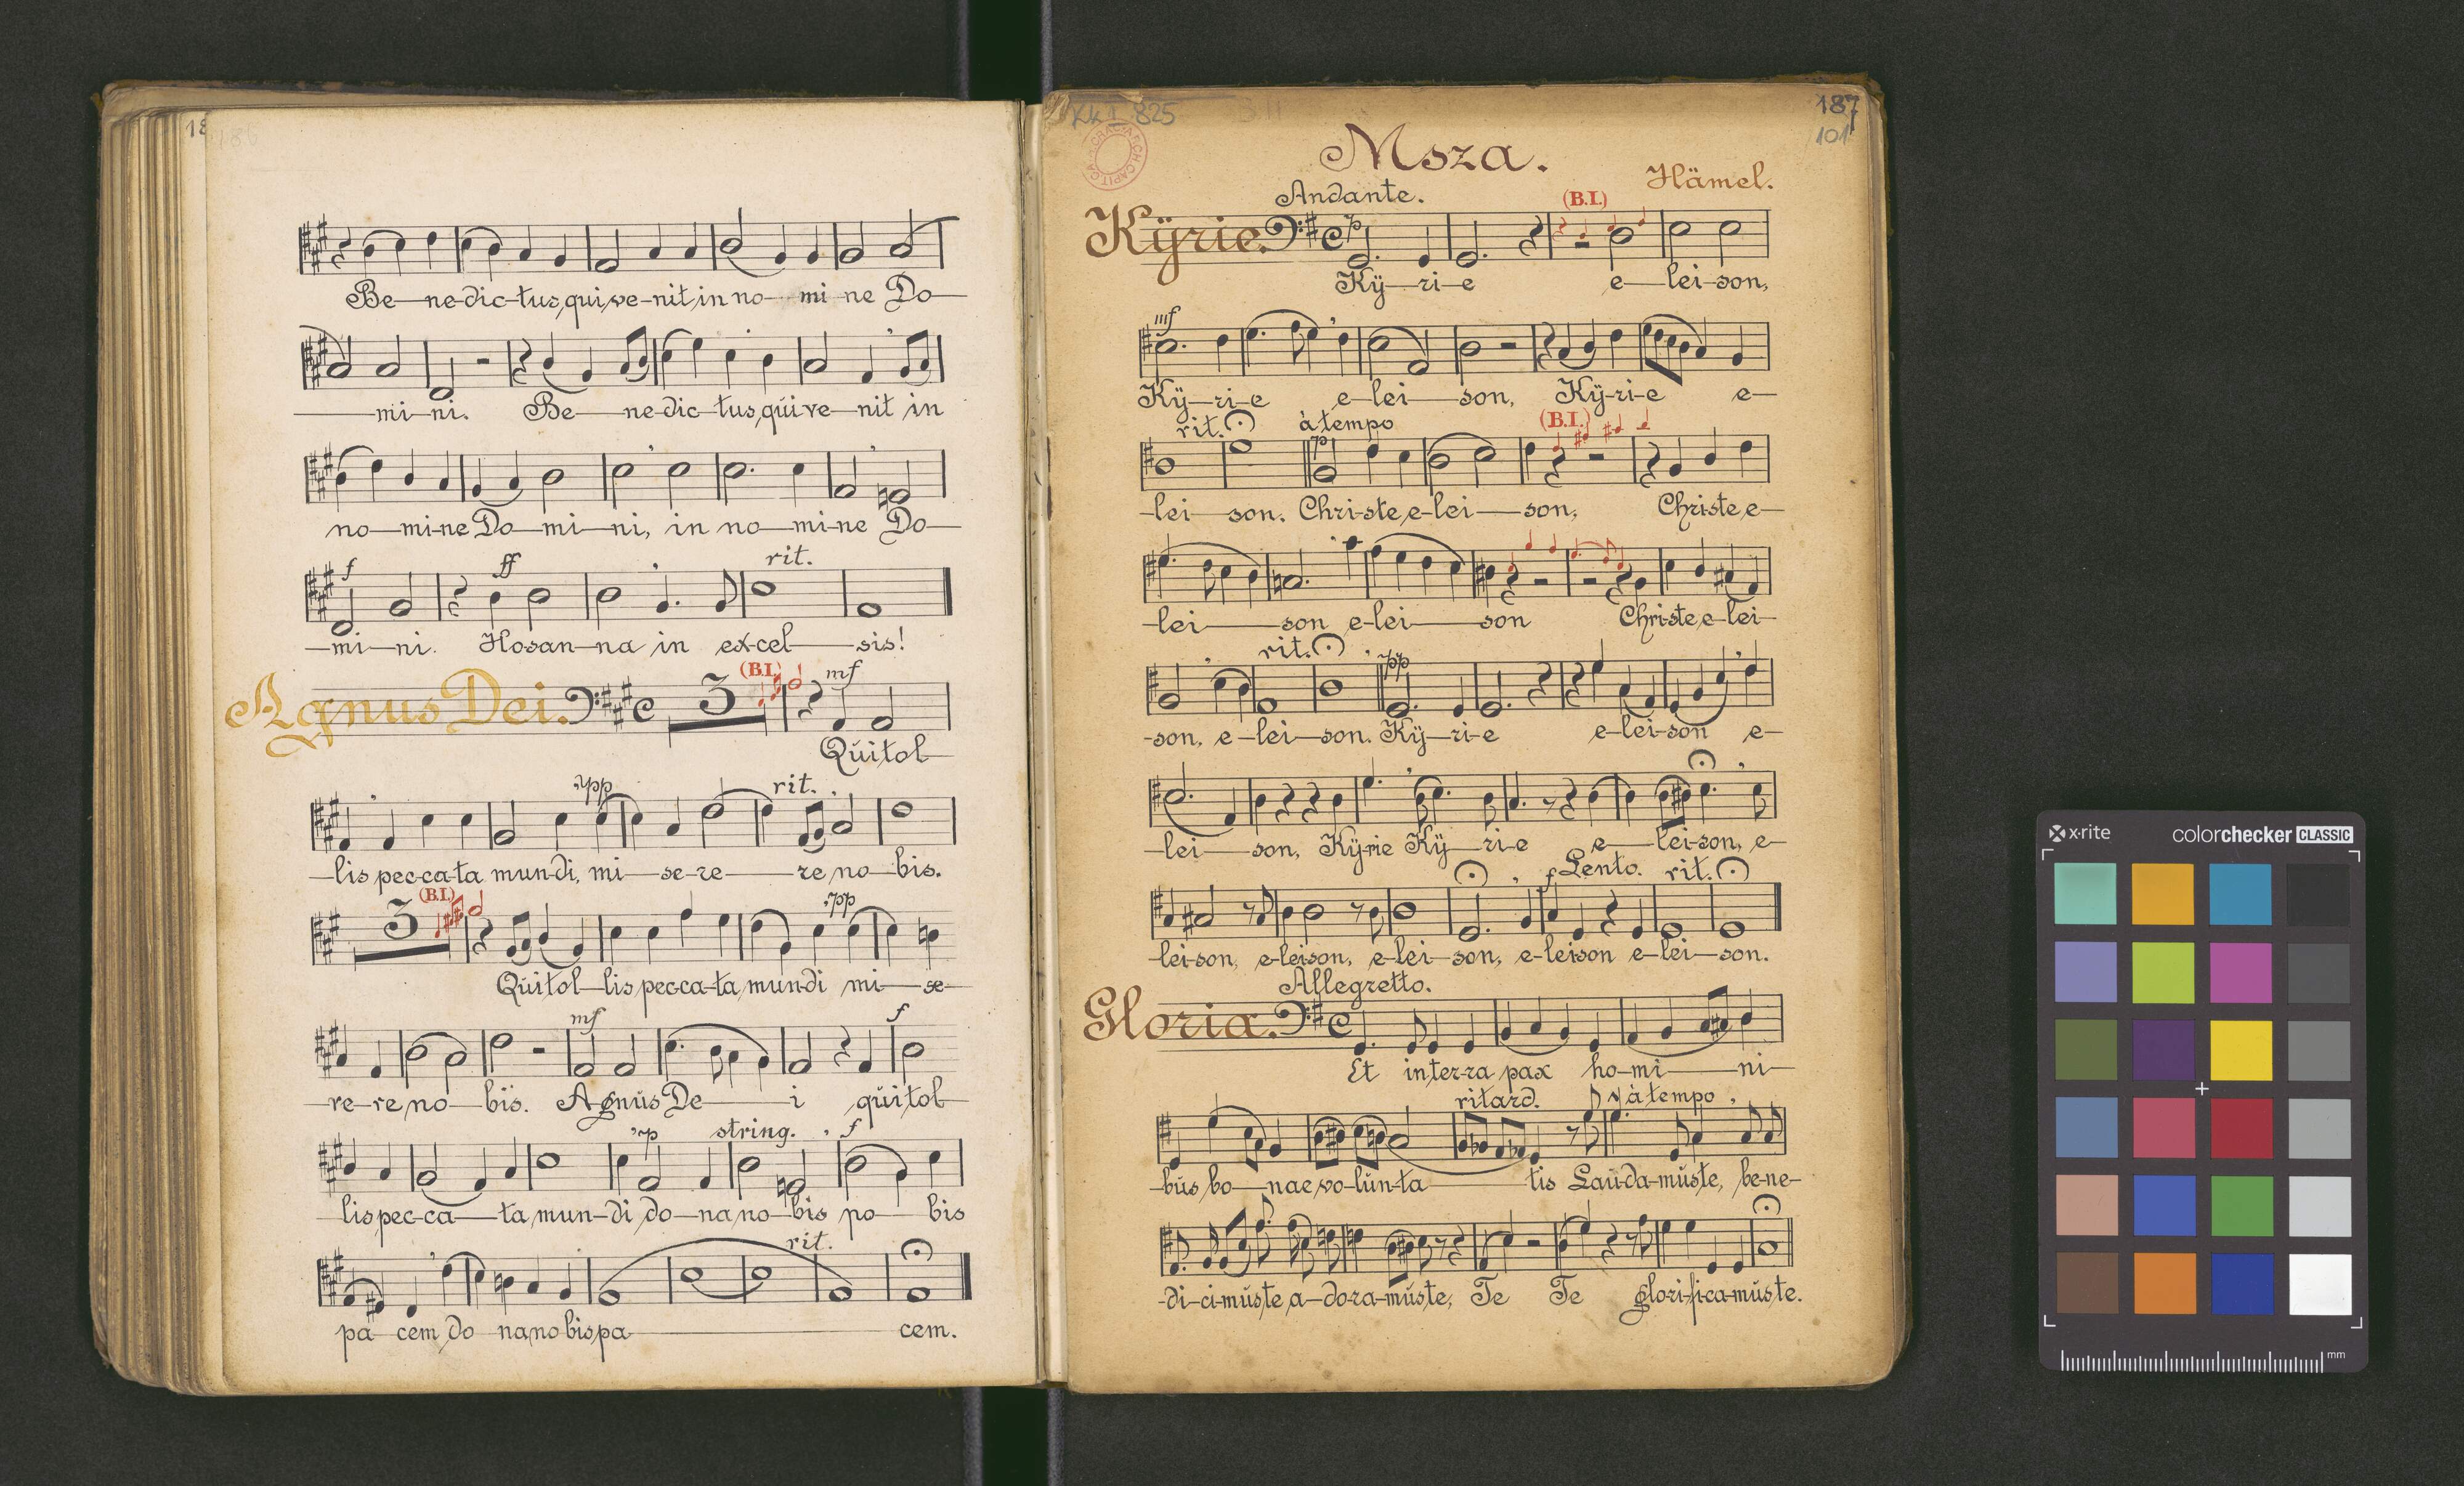 18
186
Be—ne-dic-tus, qui ve-nit in no—mi-ne Do—
—mi-ni. Be—ne-dic-tus, qui ve-nit in
no—mi-ne Do—mi—ni, in no—mi-ne Do—
f ff rit.
—mi—ni. Ho-san—na in ex-cel—sis!
(B.I.) mf
Agnus Dei. C 3
Qui tol—
pp rit.
—lis pec-ca-ta mun-di, mi—se-re—re no—bis.
(B.I.) pp
3
Qui tol—lis pec-ca-ta mun-di mi—se—
mf f
—re-re no—bis. Agnus De—i qui tol—
p string. f
—lis pec-ca—ta mun-di do-na no-bis no—bis
rit.
pa—cem, do—na no bis pa—cem.
KkI 825
187
101
Msza.
Hämel.
Andante.
(B.I.)
Kyrie. C p
Ky—ri-e e—lei-son,
mf
Ky—ri-e e-lei—son, Ky-ri-e e—
rit. à tempo (B.I.)
p
—lei—son. Chri-ste, e-lei—son, Christe, e—
—lei—son e-lei—son Christe e-lei—
rit. pp
-son, e-lei—son. Ky—ri-e e-lei-son e—
—lei—son, Ky-rie Ky—ri-e e—lei-son, e—
f Lento. rit.
lei-son, e-leison, e-lei-son, e-leison e-lei—son.
Allegretto.
Gloria. C
Et in ter-ra pax ho-mi—ni—
ritard. à tempo
-bus bo—nae vo-lun-ta—tis Lau-da-mus te, be-ne-
-di-ci-mus te a-do-ra-mus te, Te Te glori-fi-ca-mus te.
x-rite colorchecker CLASSIC
mm